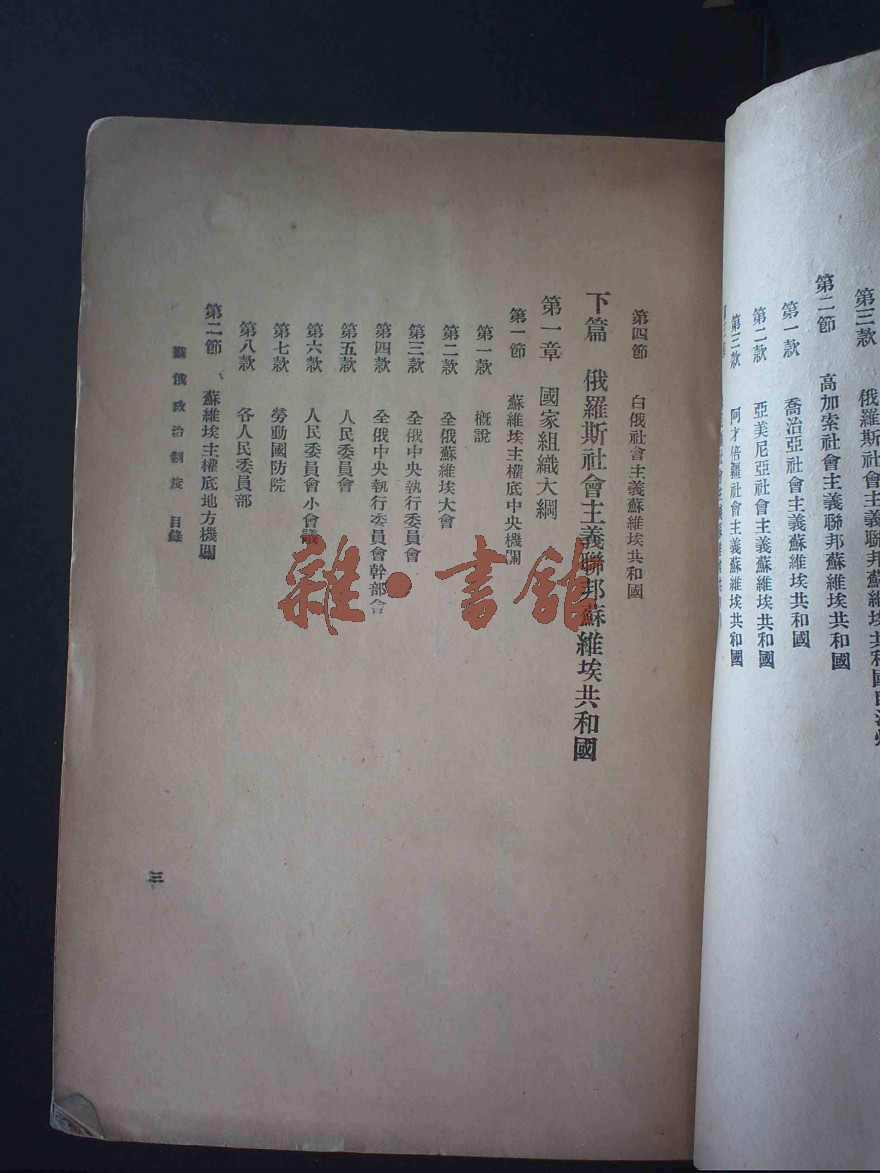 第三款 俄羅斯社會主義聯邦蘇維埃共和國自治州
第二節 高加索社會主義聯邦蘇維埃共和國
第一款 喬治亞社會主義蘇維埃共和國
第二款 亞美尼亞社會主義蘇維埃共和國
第三款 阿才倍疆社會主義蘇維埃共和國
第四節 白俄社會主義蘇維埃共和國
下篇 俄羅斯社會主義聯邦蘇維埃共和國
第一章 國家組織大綱
第一節 蘇維埃主權底中央機關
第一款 槪說
第二款 全俄蘇維埃大會
第三款 全俄中央執行委員會
第四款 全俄中央執行委員會幹部會
第五款 人民委員會
第六款 人民委員會小會議
第七款 勞動國防院
第八款 各人民委員部
第二節 蘇維埃主權底地方機關
蘇俄政治制度 目錄
三
雜·書館